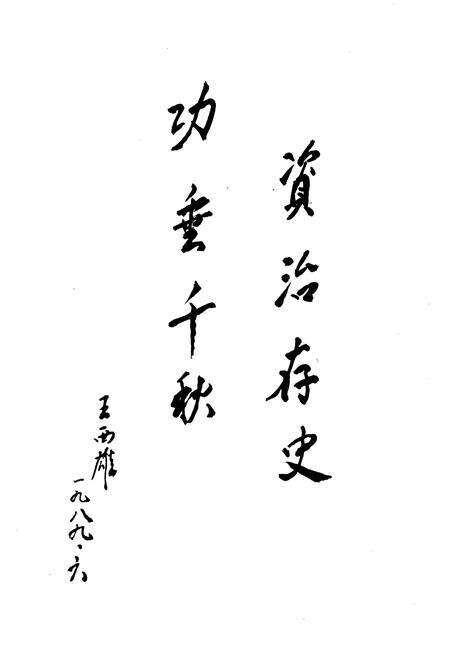 資治存史
功垂千秋
王西雄
一九八九.六